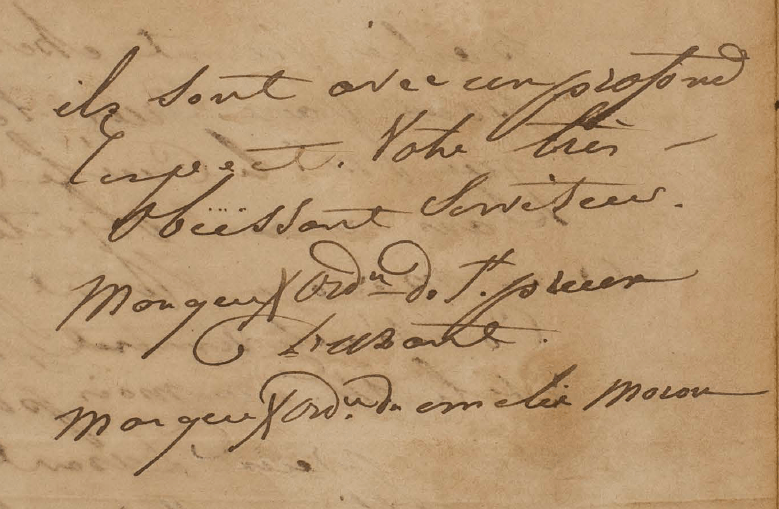 ils sont avec un profond
respect. Votre très -
obëissant Serviteur.
Marque X Ordre de St. pierre
Cruzant.
Marque X Ordre de emelie Moron